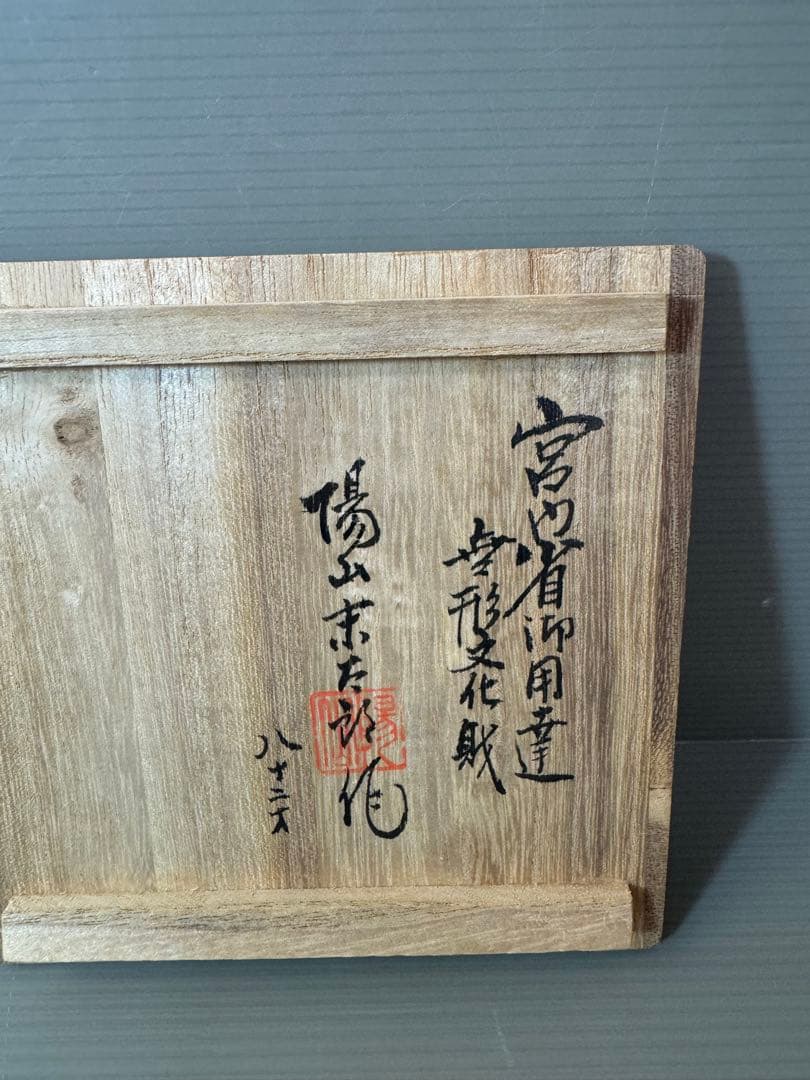 宮内省御用達
無形文化財
陽山末太郎作
八十二才